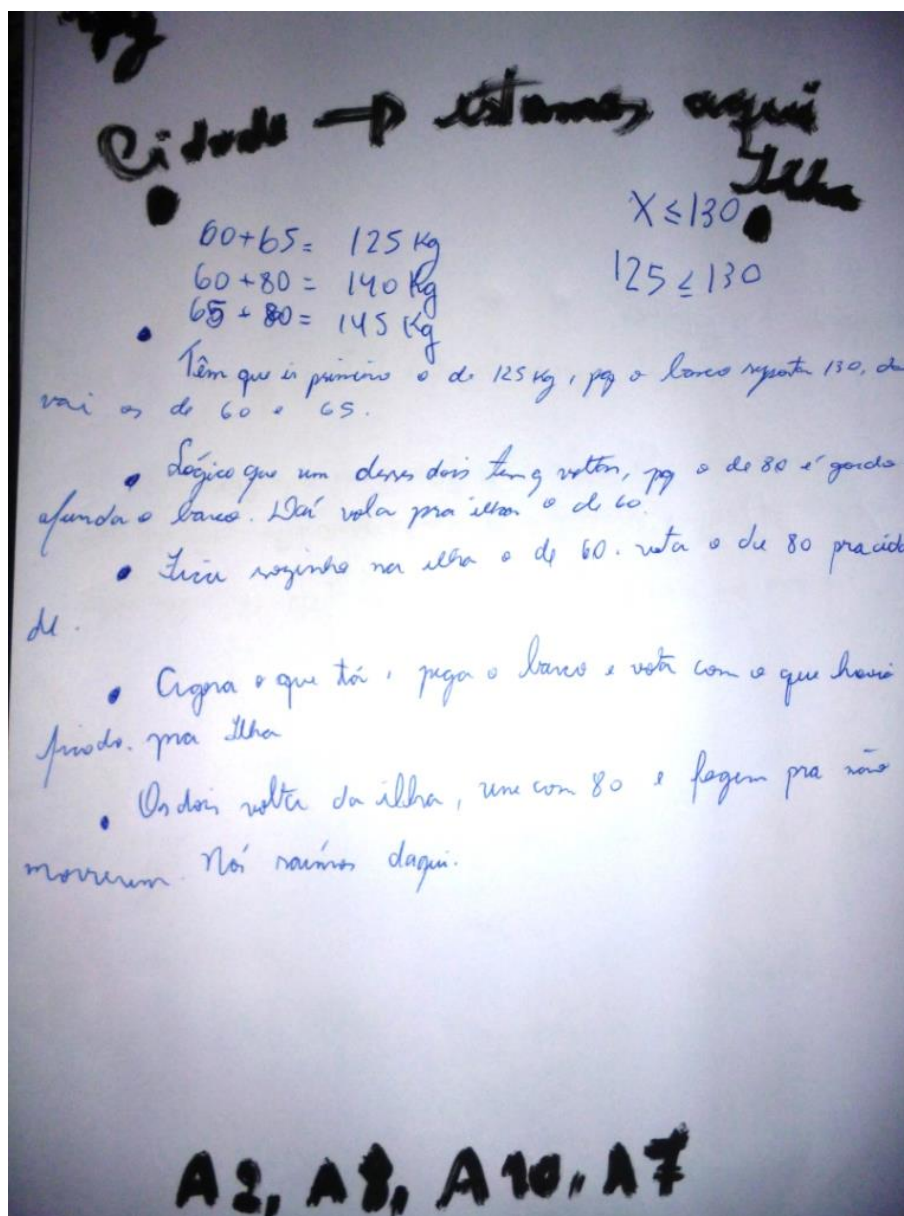 Cidade → estamos aqui
Ilha
60+65= 125 Kg
X ≤ 130
60+80= 140 Kg
125 ≤ 130
65+80= 145 Kg
• Têm que ir primeiro o de 125 Kg, pq o barco suporta 130, daí
vai os de 60 e 65.
• Lógico que um deses dois tem q voltar, pq o de 80 é gordo
afunda o barco. Daí volta pra ilha o de 60.
• Fica sozinho na ilha o de 60. volta o de 80 pra cida
de.
• Agora o que tá, pega o barco e volta com o que havia
ficado. pra Ilha
• Os dois volta da ilha, une com 80 e fogem pra não
morrerem. Nós saímos daqui.
A2, A8, A10, A7